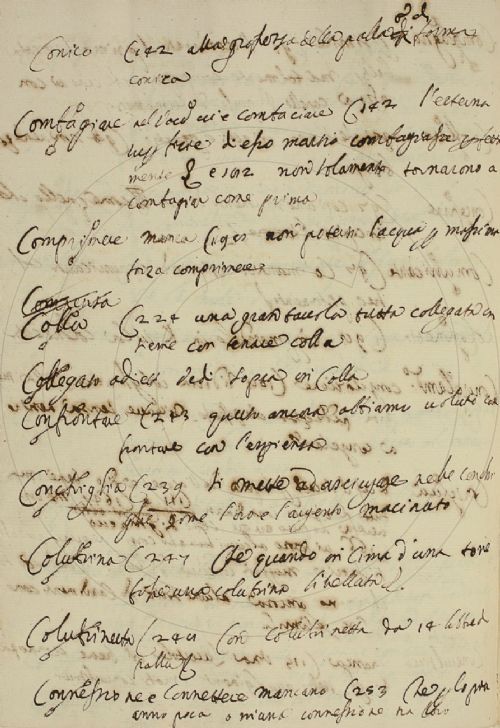 Conico C 142 alla grossezza della palla di forma
conica
Contagiare nel voc.º vi è contaciare C 142 l'esterna
di esso marmo contagiasse
mente e 102 non solamente tornarono a
contagiar come prima
Comprimere manca C 198 non potersi l'acqua p massima
forza comprimere
Colla C 224 una gran tavola tutta collegata in
sieme con tenace colla
Collegato ad es. vedi sopra in Colla
Confrontare C 243 questo ancora abbiamo voluto con
frontare con l'esperienza
Conchiglia C 239 si mette ad asciugare nelle conchi
glie come l'oro e l'argento macinato
Colubrina C 247 Che quando in cima d'una torre
fosse una colubrina livellata
Colubrinetta C 241 Con colubrinetta da 14 libbre di
palla
Connessione e connettere mancano C 253 Che
anno poca o niuna connessione tra loro